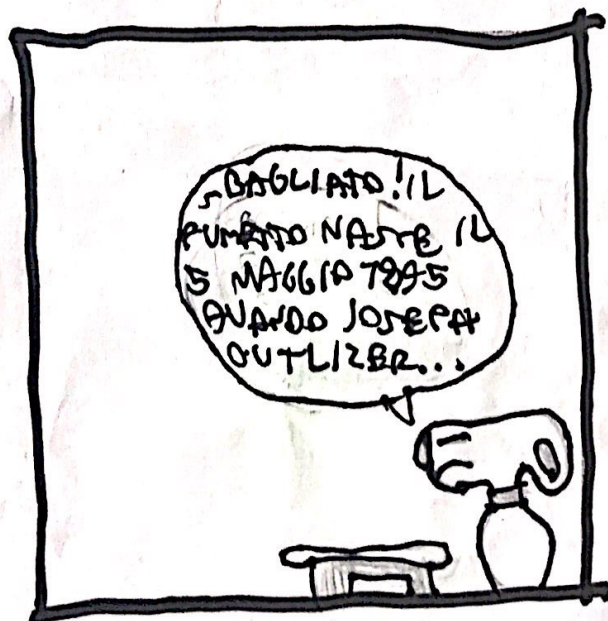 SBAGLIATO! IL
FUMETTO NASCE IL
5 MAGGIO 1895
QUANDO JOSEPH
OUTLIZER...